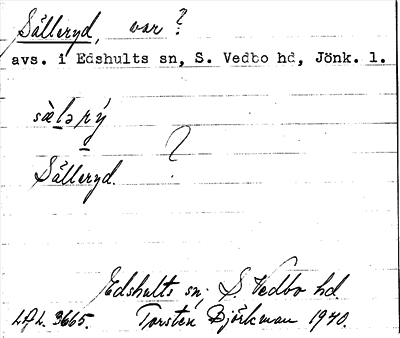 Sälleryd, var?
avs. i Edshults sn, S. Vedbo hd, Jönk. l.
Sälleryd. ?
Edshults sn, S. Vedbo hd.
LAL. 3665. Torsten Björkman 1940.